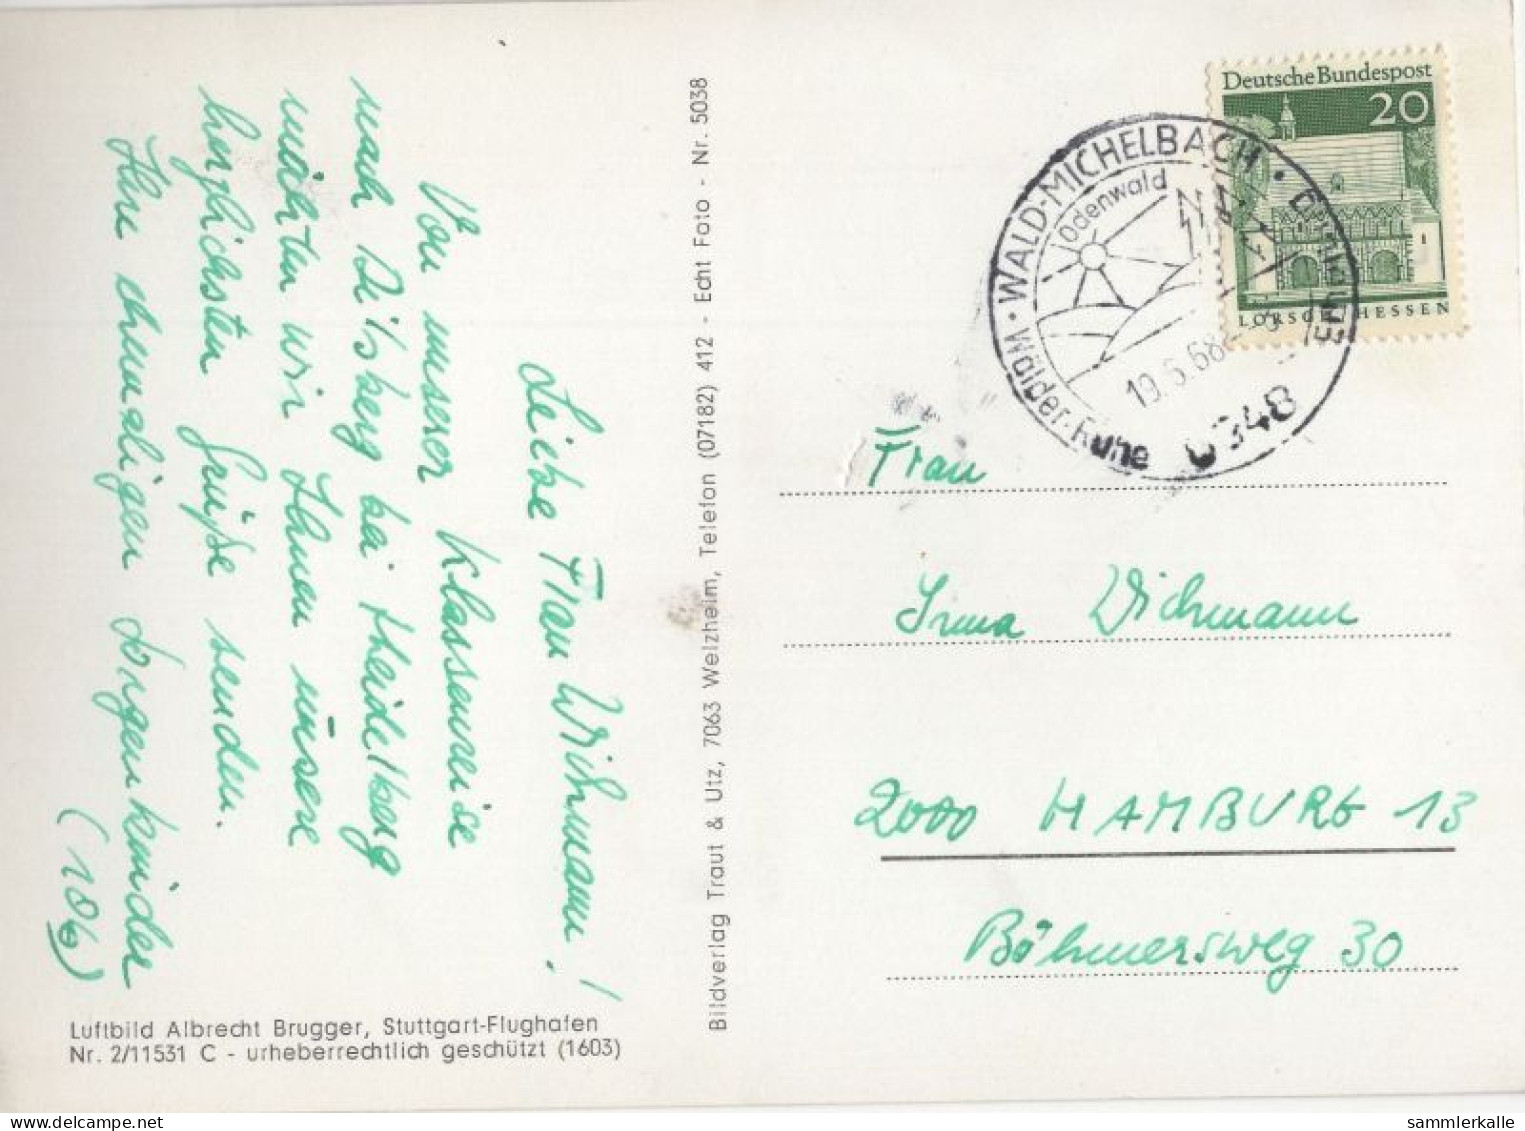 Liebe Frau Wichmann!
Von unserer Klassenreise
nach Dilsberg bei Heidelberg
möchten wir Ihnen unsere
herzlichsten Grüße senden.
Ihre ehemaligen Sorgenkinder
(10b)
Luftbild Albrecht Brugger, Stuttgart-Flughafen
Nr. 2/11531 C - urheberrechtlich geschützt (1603)
Bildverlag Traut & Utz, 7063 Welzheim, Telefon (07182) 412 - Echt Foto - Nr. 5038
Deutsche Bundespost
20
LORSCH HESSEN
WALD-MICHELBACH
Odenwald
Wälder · Ruhe · Erholung
19.6.68
6948
Frau
Irma Wichmann
2000 HAMBURG 13
Böhmersweg 30
sammlerkalle